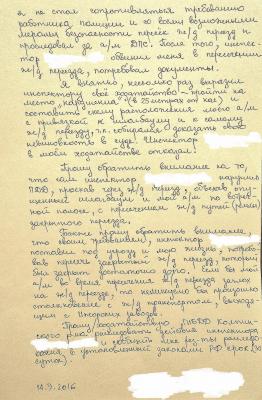 я не стал сопротивляться требованию
работника полиции и со всеми возможными
мерами безопасности пересёк ж/д переезд и
проследовал за а/м ДПС. После того, инспек-
тор обвинил меня в пересечении
ж/д переезда, потребовал документы.
Я вежливо, несколько раз выразил
инспектору своё ходатайство – пройти на
место "нарушения" (в 25 метрах от нас) и
составить схему расположения моего а/м
с привязкой к шлагбауму и к самому
ж/д переезду, т.к. собирался доказать свою
невиновность в суде. Инспектор
в моём ходатайстве отказал!
Прошу обратить внимание на то,
что сам инспектор нарушил
ПДД, проехав через ж/д переезд, объехав опу-
щенный шлагбаум и мой а/м по встреч-
ной полосе, с пересечением ж/д путей (рельс)
закрытого переезда.
Также прошу обратить внимание,
что своим требованием, инспектор
поставил под угрозу и мою жизнь, потребо-
вав пересечь закрытый ж/д переезд, который
был закрыт достаточно долго, если бы мой
а/м во время пересечения ж/д переезда заглох
на ж/д переезде, то неминуемо бы произошло
столкновение с ж/д транспортом, выходя-
щим с Ижорских заводов.
Прошу/ходатайствую, ГИБДД Колпин-
ского р-на расследовать действия инспектора
и сообщить мне рез-ты рассле-
дования, в установленный законами РФ срок (30
суток).
14.9.2016